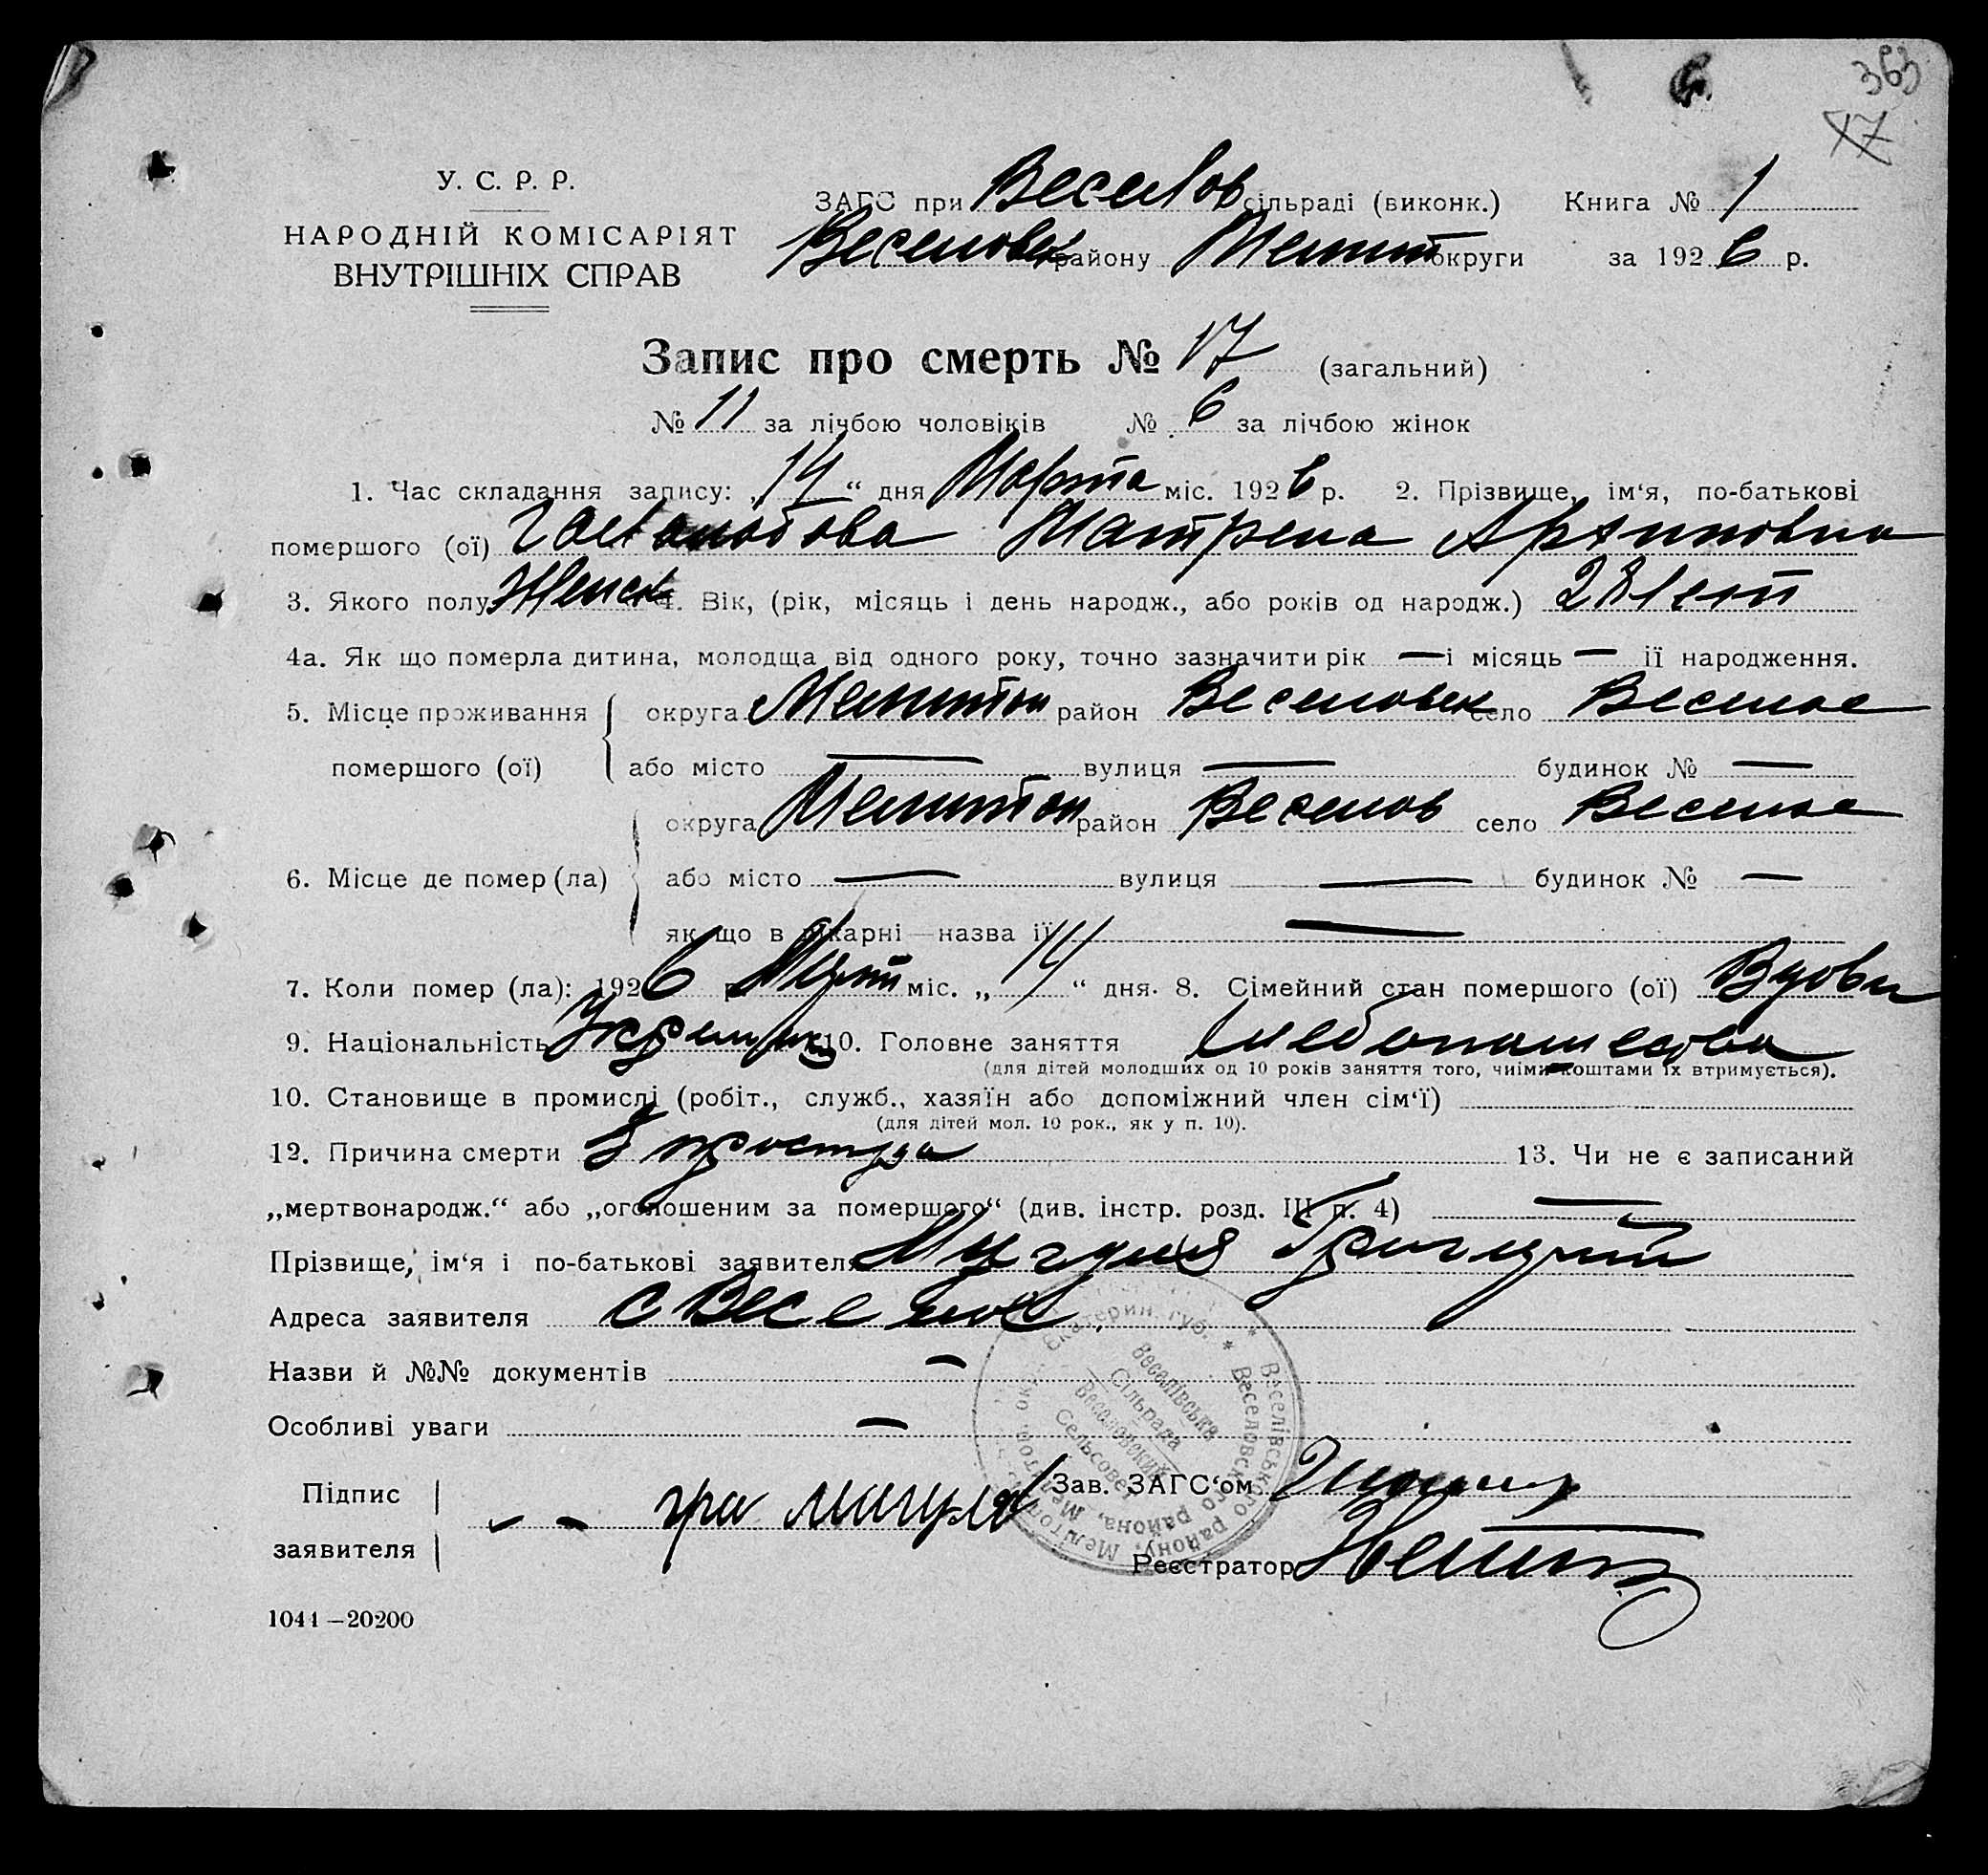 363
17
У. С. Р. Р.
НАРОДНІЙ КОМІСАРІЯТ
ВНУТРІШНІХ СПРАВ
ЗАГС при Веселов сільраді (виконк.) Книга № 1
Веселовск району Мелит округи за 1926 р.
Запис про смерть № 17 (загальний)
№ 11 за лічбою чоловіків № 6 за лічбою жінок
1. Час складання запису: „14“ дня Марта міс. 1926 р. 2. Прізвище, ім‘я, по-батькові
помершого (ої) Матрена Архиповна
3. Якого полу Женск 4. Вік, (рік, місяць і день народж., або років од народж.) 28 лет
4а. Як що померла дитина, молодща від одного року, точно зазначити рік — і місяць — її народження.
5. Місце проживання округа Мелитоп район Веселовск село Веселое
помершого (ої) або місто — вулиця — будинок № —
округа Мелитоп район Веселов село Веселое
6. Місце де помер (ла) або місто — вулиця — будинок № —
як що в лікарні — назва її —
7. Коли помер (ла): 1926 р. Март міс. „14“ дня. 8. Сімейний стан помершого (ої) Вдова
9. Національність 10. Головне заняття хлебопашество
(для дітей молодших од 10 років заняття того, чиїми коштами їх втримується).
10. Становище в промислі (робіт., служб., хазяїн або допоміжний член сім‘ї)
(для дітей мол. 10 рок., як у п. 10).
12. Причина смерти простуда 13. Чи не є записаний
„мертвонародж.“ або „оголошеним за помершого“ (див. інстр. розд. III п. 4) —
Прізвище, ім‘я і по-батькові заявителя Григорий
Адреса заявителя с Веселое
Назви й №№ документів —
Особливі уваги —
Підпис
заявителя
Зав. ЗАГС‘ом
Реєстратор
Веселівська
Сільрада
Веселовский
Сельсовет
1041—20200